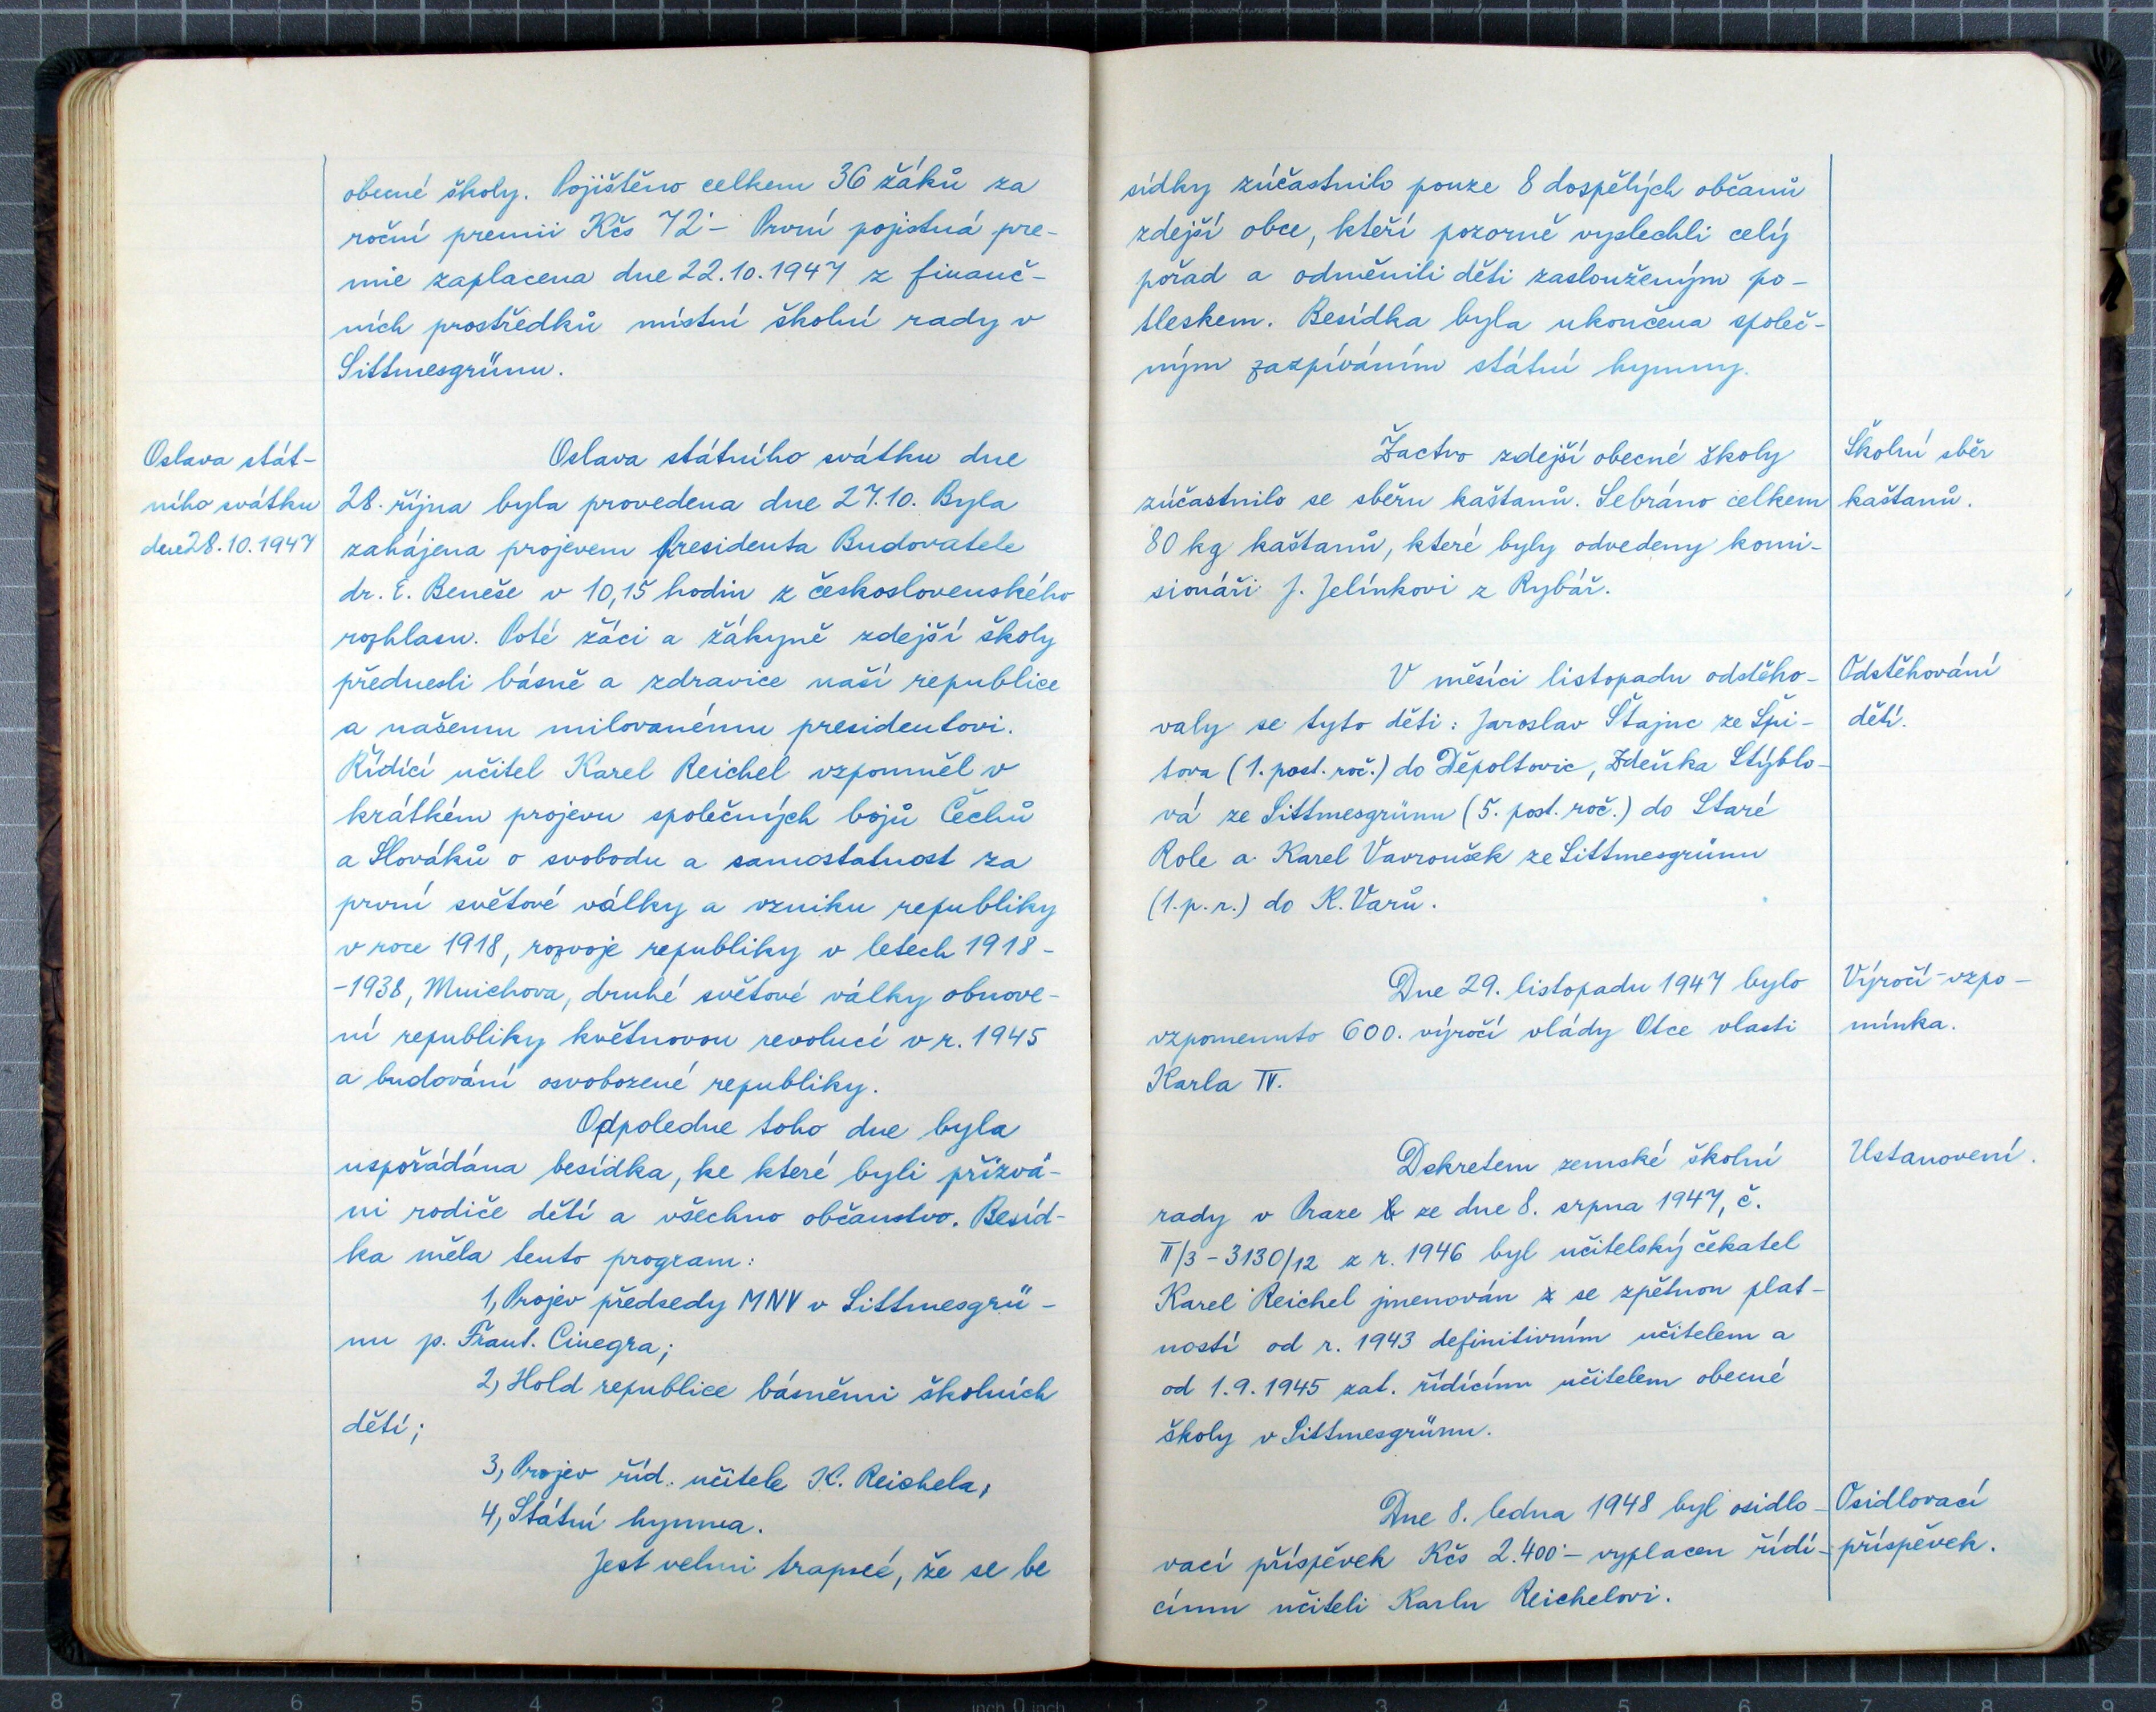 obecné školy. Pojištěno celkem 36 žáků za
roční premii Kčs 72·- První pojistná pre-
mie zaplacena dne 22.10.1947 z finanč-
ních prostředků místní školní rady v
Sittmesgrünu.
Oslava stát-
ního svátku
dne 28.10.1947
Oslava státního svátku dne
28. října byla provedena dne 27.10. Byla
zahájena projevem Presidenta Budovatele
dr. E. Beneše v 10,15 hodin z československého
rozhlasu. Poté žáci a žákyně zdejší školy
přednesli básně a zdravice naší republice
a našemu milovanému presidentovi.
Řídící učitel Karel Reichel vzpomněl v
krátkém projevu společných bojů Čechů
a Slováků o svobodu a samostatnost za
první světové války a vzniku republiky
v roce 1918, rozvoje republiky v letech 1918-
-1938, Mnichova, druhé světové války obnove-
ní republiky květnovou revolucí v r. 1945
a budování osvobozené republiky.
Odpoledne toho dne byla
uspořádána besídka, ke které byli přizvá-
ni rodiče dětí a všechno občanstvo. Besíd-
ka měla tento program:
1, Projev předsedy MNV v Sittmesgrü-
nu p. Frant. Cinegra;
2, Hold republice básněmi školních
dětí;
3, Projev říd. učitele K. Reichela,
4, Státní hymna.
Jest velmi trapné, že se be
sídky zúčastnilo pouze 8 dospělých občanů
zdejší obce, kteří pozorně vyslechli celý
pořad a odměnili děti zaslouženým po-
tleskem. Besídka byla ukončena společ-
ným zazpíváním státní hymny.
Žactvo zdejší obecné školy
zúčastnilo se sběru kaštanů. Sebráno celkem
80 kg kaštanů, které byly odvedeny komi-
sionáři J. Jelínkovi z Rybář.
Školní sběr
kaštanů.
V měsíci listopadu odstěho-
valy se tyto děti: Jaroslav Štajnc ze Špi-
tova (1. post. roč.) do Děpoltovic, Zdeňka Stýblo-
vá ze Sittmesgrünu (5. post. roč.) do Staré
Role a Karel Vavroušek ze Sittmesgrünu
(1. p. r.) do K. Varů.
Odstěhování
dětí.
Dne 29. listopadu 1947 bylo
vzpomenuto 600. výročí vlády Otce vlasti
Karla IV.
Výročí-vzpo-
mínka.
Dekretem zemské školní
rady v Praze ze dne 8. srpna 1947, č.
II/3-3130/12 z r. 1946 byl učitelský čekatel
Karel Reichel jmenován se zpětnou plat-
ností od r. 1943 definitivním učitelem a
od 1.9.1945 zat. řídícím učitelem obecné
školy v Sittmesgrünu.
Ustanovení.
Dne 8. ledna 1948 byl osidlo-
vací příspěvek Kčs 2.400·- vyplacen řídí-
címu učiteli Karlu Reichelovi.
Osidlovací
příspěvek.
8 7 6 5 4 3 2 1 inch 0 inch 1 2 3 4 5 6 7 8 9